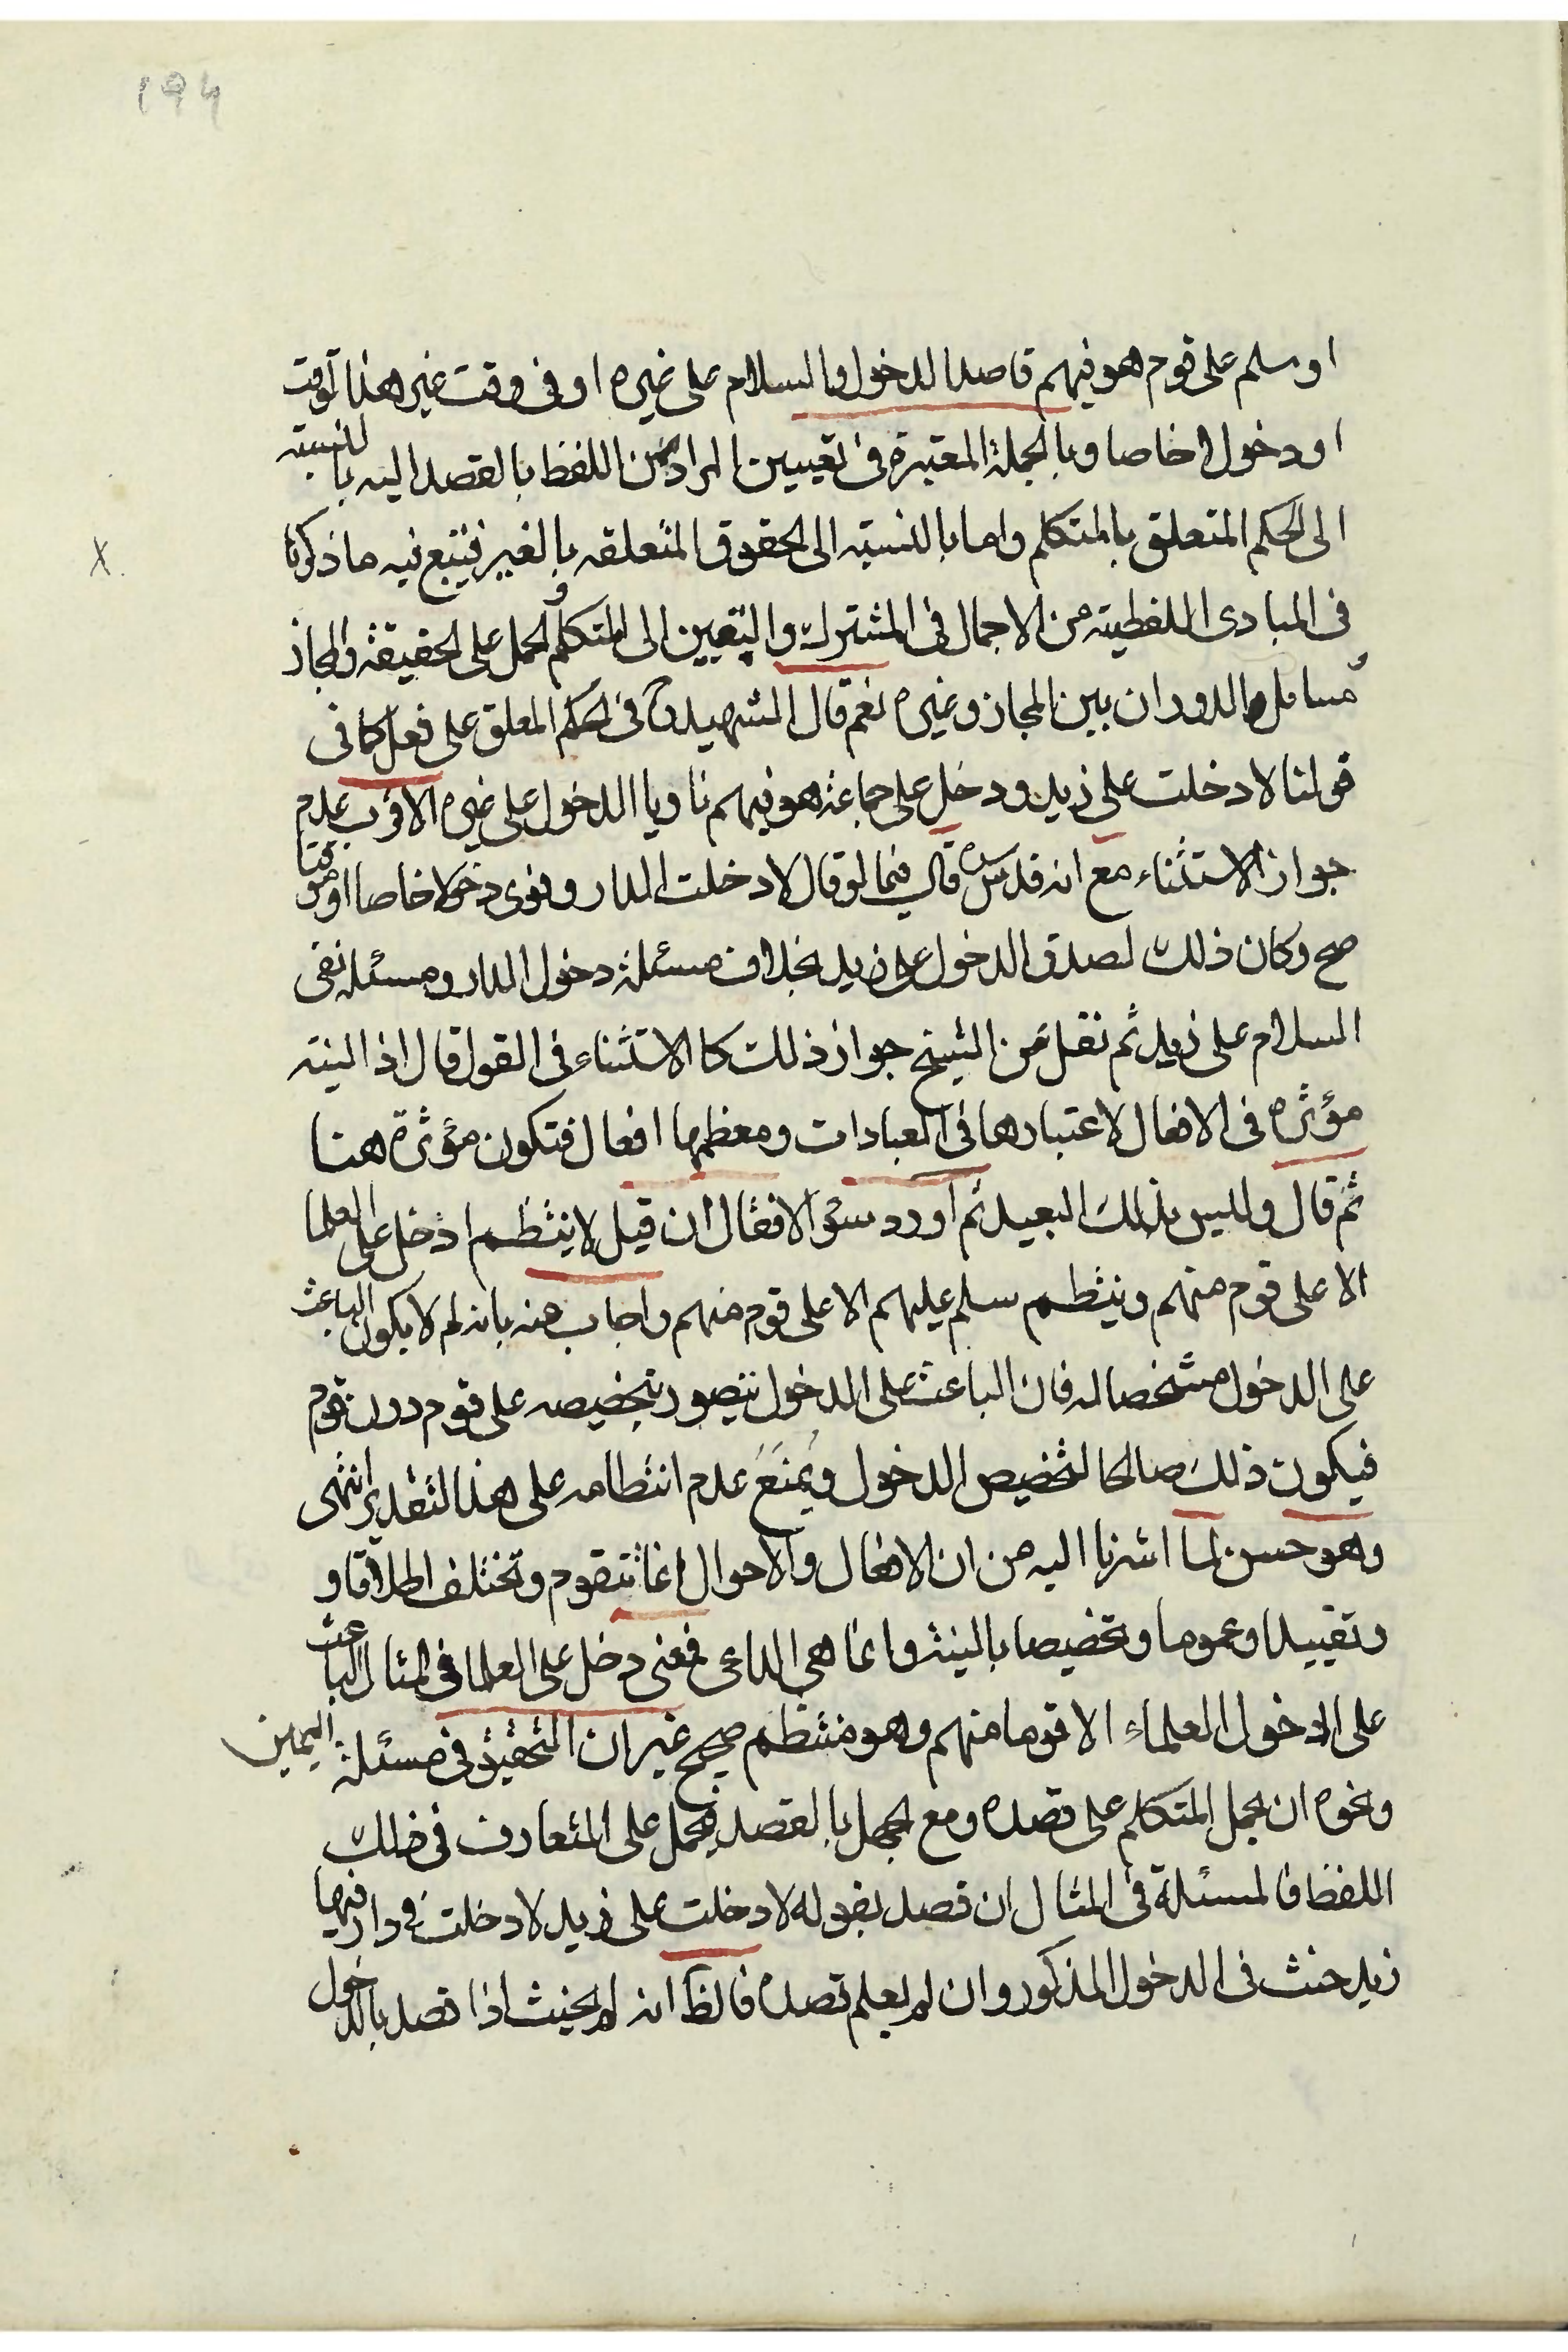 ١٩٤
او سلم على قوم هو فيهم قاصدا الدخول والسلام على غيره او فى وقت غير هذا الوقت
او دخولا خاصا وبالجملة المعتبرة فى تعيين المراد من اللفظ بالقصد اليه بالنسبته
الى الحكم المتعلق بالمتكلم واما بالنسبته الى الحقوق المتعلقه بالغير فيتبع فيه ما ذكرنا
فى المبادى اللفظيته من الاجمال فى المشترك والتعيين الى المتكلم والحمل على الحقيقة والمجاز
ومسائل الدوران بين المجاز وغيره نعم قال الشهيد فى الحكم المعلق على فعل كما فى
قولنا لا دخلت على زيد ودخل على جماعة هو فيهم ناويا الدخول على غيره الاقرب عدم
جواز الاستثناء مع انه قدس سره قال فيما لو قال لا دخلت الدار ونوى دخولا خاصا او موقتا
صح وكان ذلك لصدق الدخول على زيد بخلاف مسئلة دخول الدار ومسئله نفى
السلام على زيد ثم نقل عن الشيخ جواز ذلك كالاستثناء فى القول قال اذ النيته
مؤثره فى الافعال لاعتبارها فى العبادات ومعظمها افعال فتكون مؤثرة هنا
ثم قال وليس بذلك البعيد ثم اورد سؤالا فقال ان قيل لا ينتظم ادخل على العلما
الا على قوم منهم وينتظم سلم عليهم الا على قوم منهم واجاب عنه بانه لم لا يكون الباعث
على الدخول مشخصا له فان الباعث على الدخول يتصور تخصيصه على قوم دون قوم
فيكون ذلك صالحا لتخصيص الدخول ويمنع عدم انتظامه على هذا التقدير انتهى
وهو حسن لما اشرنا اليه من ان الافعال والاحوال انما تتقوم وتختلف اطلاقا و
وتقييدا وعموما وتخصيصا بالنيته وانما هى الداعى فمعنى دخل على العلما فى المثال الباعث
على الدخول العلماء الا قوما منهم وهو منتظم صحيح غير ان التحقيق فى مسئلة اليمين
ونحوه ان يحمل المتكلم على قصده ومع الجهل بالقصد فيحمل على المتعارف فى ذلك
اللفظ فالمسئلة فى المثال ان قصد بقوله لا دخلت على زيد لا دخلت فى دار فيها
زيد حنث فى الدخول المذكور وان لم يعلم قصده فالظ انه لم يحنث اذا قصد بالدخول